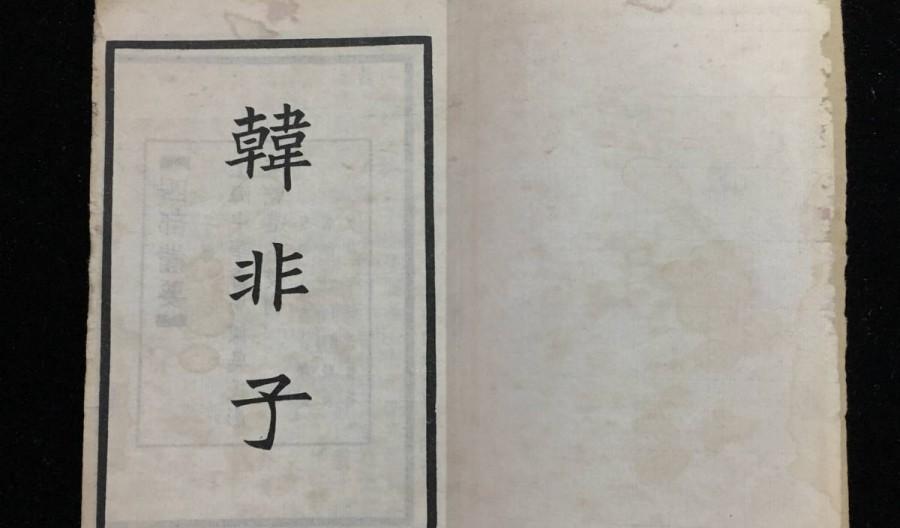 韓非子